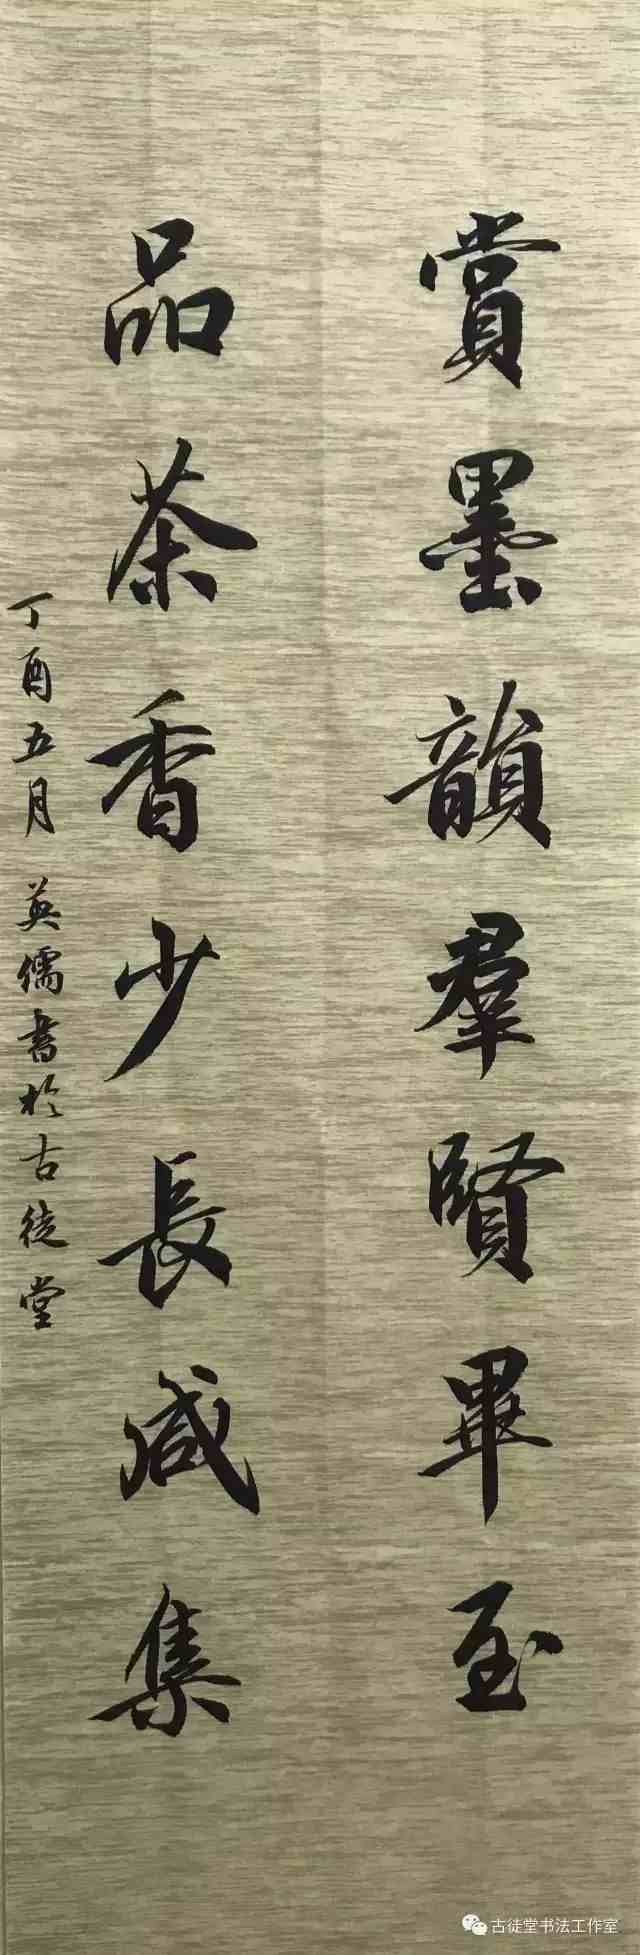 賞墨韻羣賢畢至
品茶香少長咸集
丁酉五月英儒書於古徒堂
古徒堂书法工作室